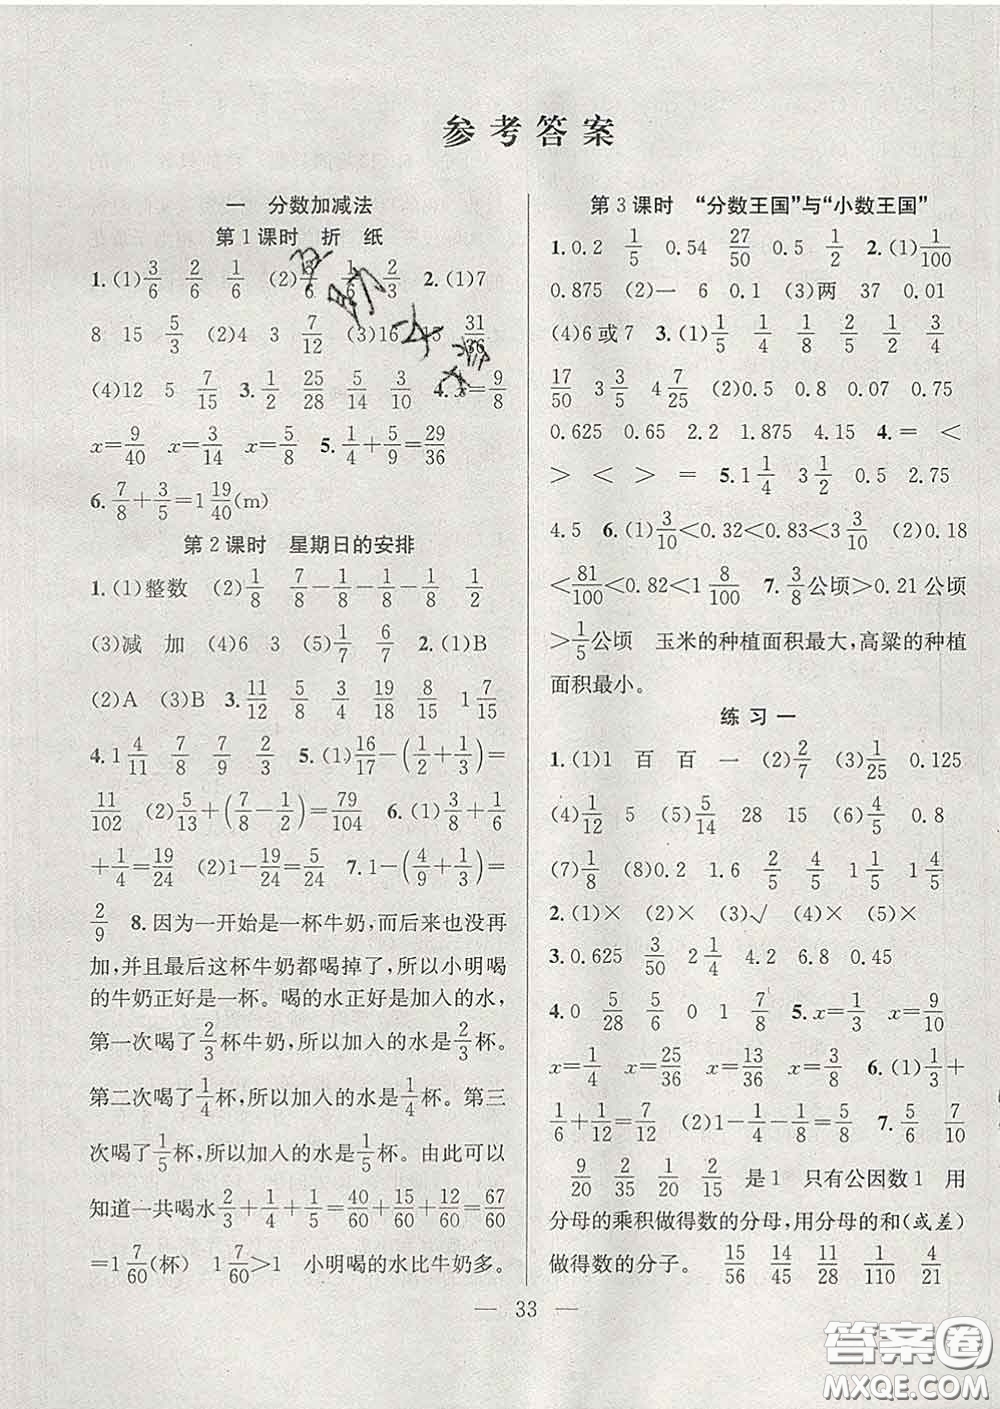 参考答案
一 分数加减法
第1课时 折 纸
1.(1)3/6 2/6 1/6 (2)3/6 1/6 2/3 2.(1)7
8 15 5/3 (2)4 3 7/12 (3)16 15 31/36
(4)12 5 7/15 3.1/2 25/28 5/14 3/10 4.x=9/8
x=9/40 x=3/14 x=5/8 5.1/4+5/9=29/36
6.7/8+3/5=1 19/40(m)
第2课时 星期日的安排
1.(1)整数 (2)1/8 7/8-1/8-1/8-1/8 1/2
(3)减 加 (4)6 3 (5)1/7 6/7 2.(1)B
(2)A (3)B 3.11/12 5/8 13/18 8/15 1 7/15
4.1 4/11 7/8 7/9 2/3 5.(1)16/17-(1/2+1/3)=
11/102 (2)5/13+(7/8-1/2)=79/104 6.(1)3/8+1/6
+1/4=19/24 (2)1-19/24=5/24 7.1-(4/9+1/3)=
2/9 8.因为一开始是一杯牛奶,而后来也没再
加,并且最后这杯牛奶都喝掉了,所以小明喝
的牛奶正好是一杯。喝的水正好是加入的水,
第一次喝了2/3杯牛奶,所以加入的水是2/3杯。
第二次喝了1/4杯,所以加入的水是1/4杯。第三
次喝了1/5杯,所以加入的水是1/5杯。由此可以
知道一共喝水2/3+1/4+1/5=40/60+15/60+12/60=67/60
=1 7/60(杯) 1 7/60>1 小明喝的水比牛奶多。
第3课时 “分数王国”与“小数王国”
1.0.2 1/5 0.54 27/50 0.5 1/2 2.(1)1/100
0.875 (2)一 6 0.1 (3)两 37 0.01
(4)6或7 3.(1)1/5 1/4 1/8 1/2 3/4
17/50 3 3/5 4 7/25 (2)0.8 0.07 0.75
0.625 0.65 2.2 1.875 4.15 4.= <
> < > = 5.1 1/4 3 1/2 0.5 2.75
4.5 6.(1)3/10<0.32<0.83<3 3/10 (2)0.18
<81/100<0.82<1 8/100 7.3/8公顷>0.21公顷
>1/5公顷 玉米的种植面积最大,高粱的种植
面积最小。
练习一
1.(1)1 百 百 一 (2)2/7 (3)1/25 0.125
(4)1/12 5 (5)5/14 28 15 (6)4/5 0.8
(7)1/8 0.2 1.6 2/5 4/5 1 1/5 1 4/5
2.(1)× (2)× (3)√ (4)× (5)×
3.0.625 3/50 2 1/4 0.75 0.45
4.0 5/28 5/6 0 1 7/8 5.x=1/3 x=9/10
x=1/4 x=25/36 x=13/36 x=3/4 6.(1)1/3+
1/6+1/12=7/12 (2)1-1/4-1/8=5/8 7.5/6 7/10
9/20 2/35 1/20 2/15 是1 只有公因数1 用
分母的乘积做得数的分母,用分母的和(或差)
做得数的分子。 15/56 14/45 11/28 1/110 4/21
— 33 —
答案圈
MXQE.COM